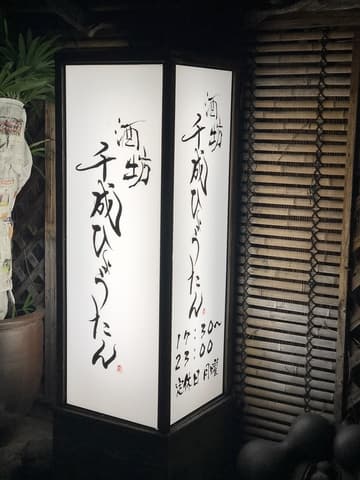 酒坊
千成ひょうたん
酒坊
千成ひょうたん
17:30〜
23:00
定休日 月曜